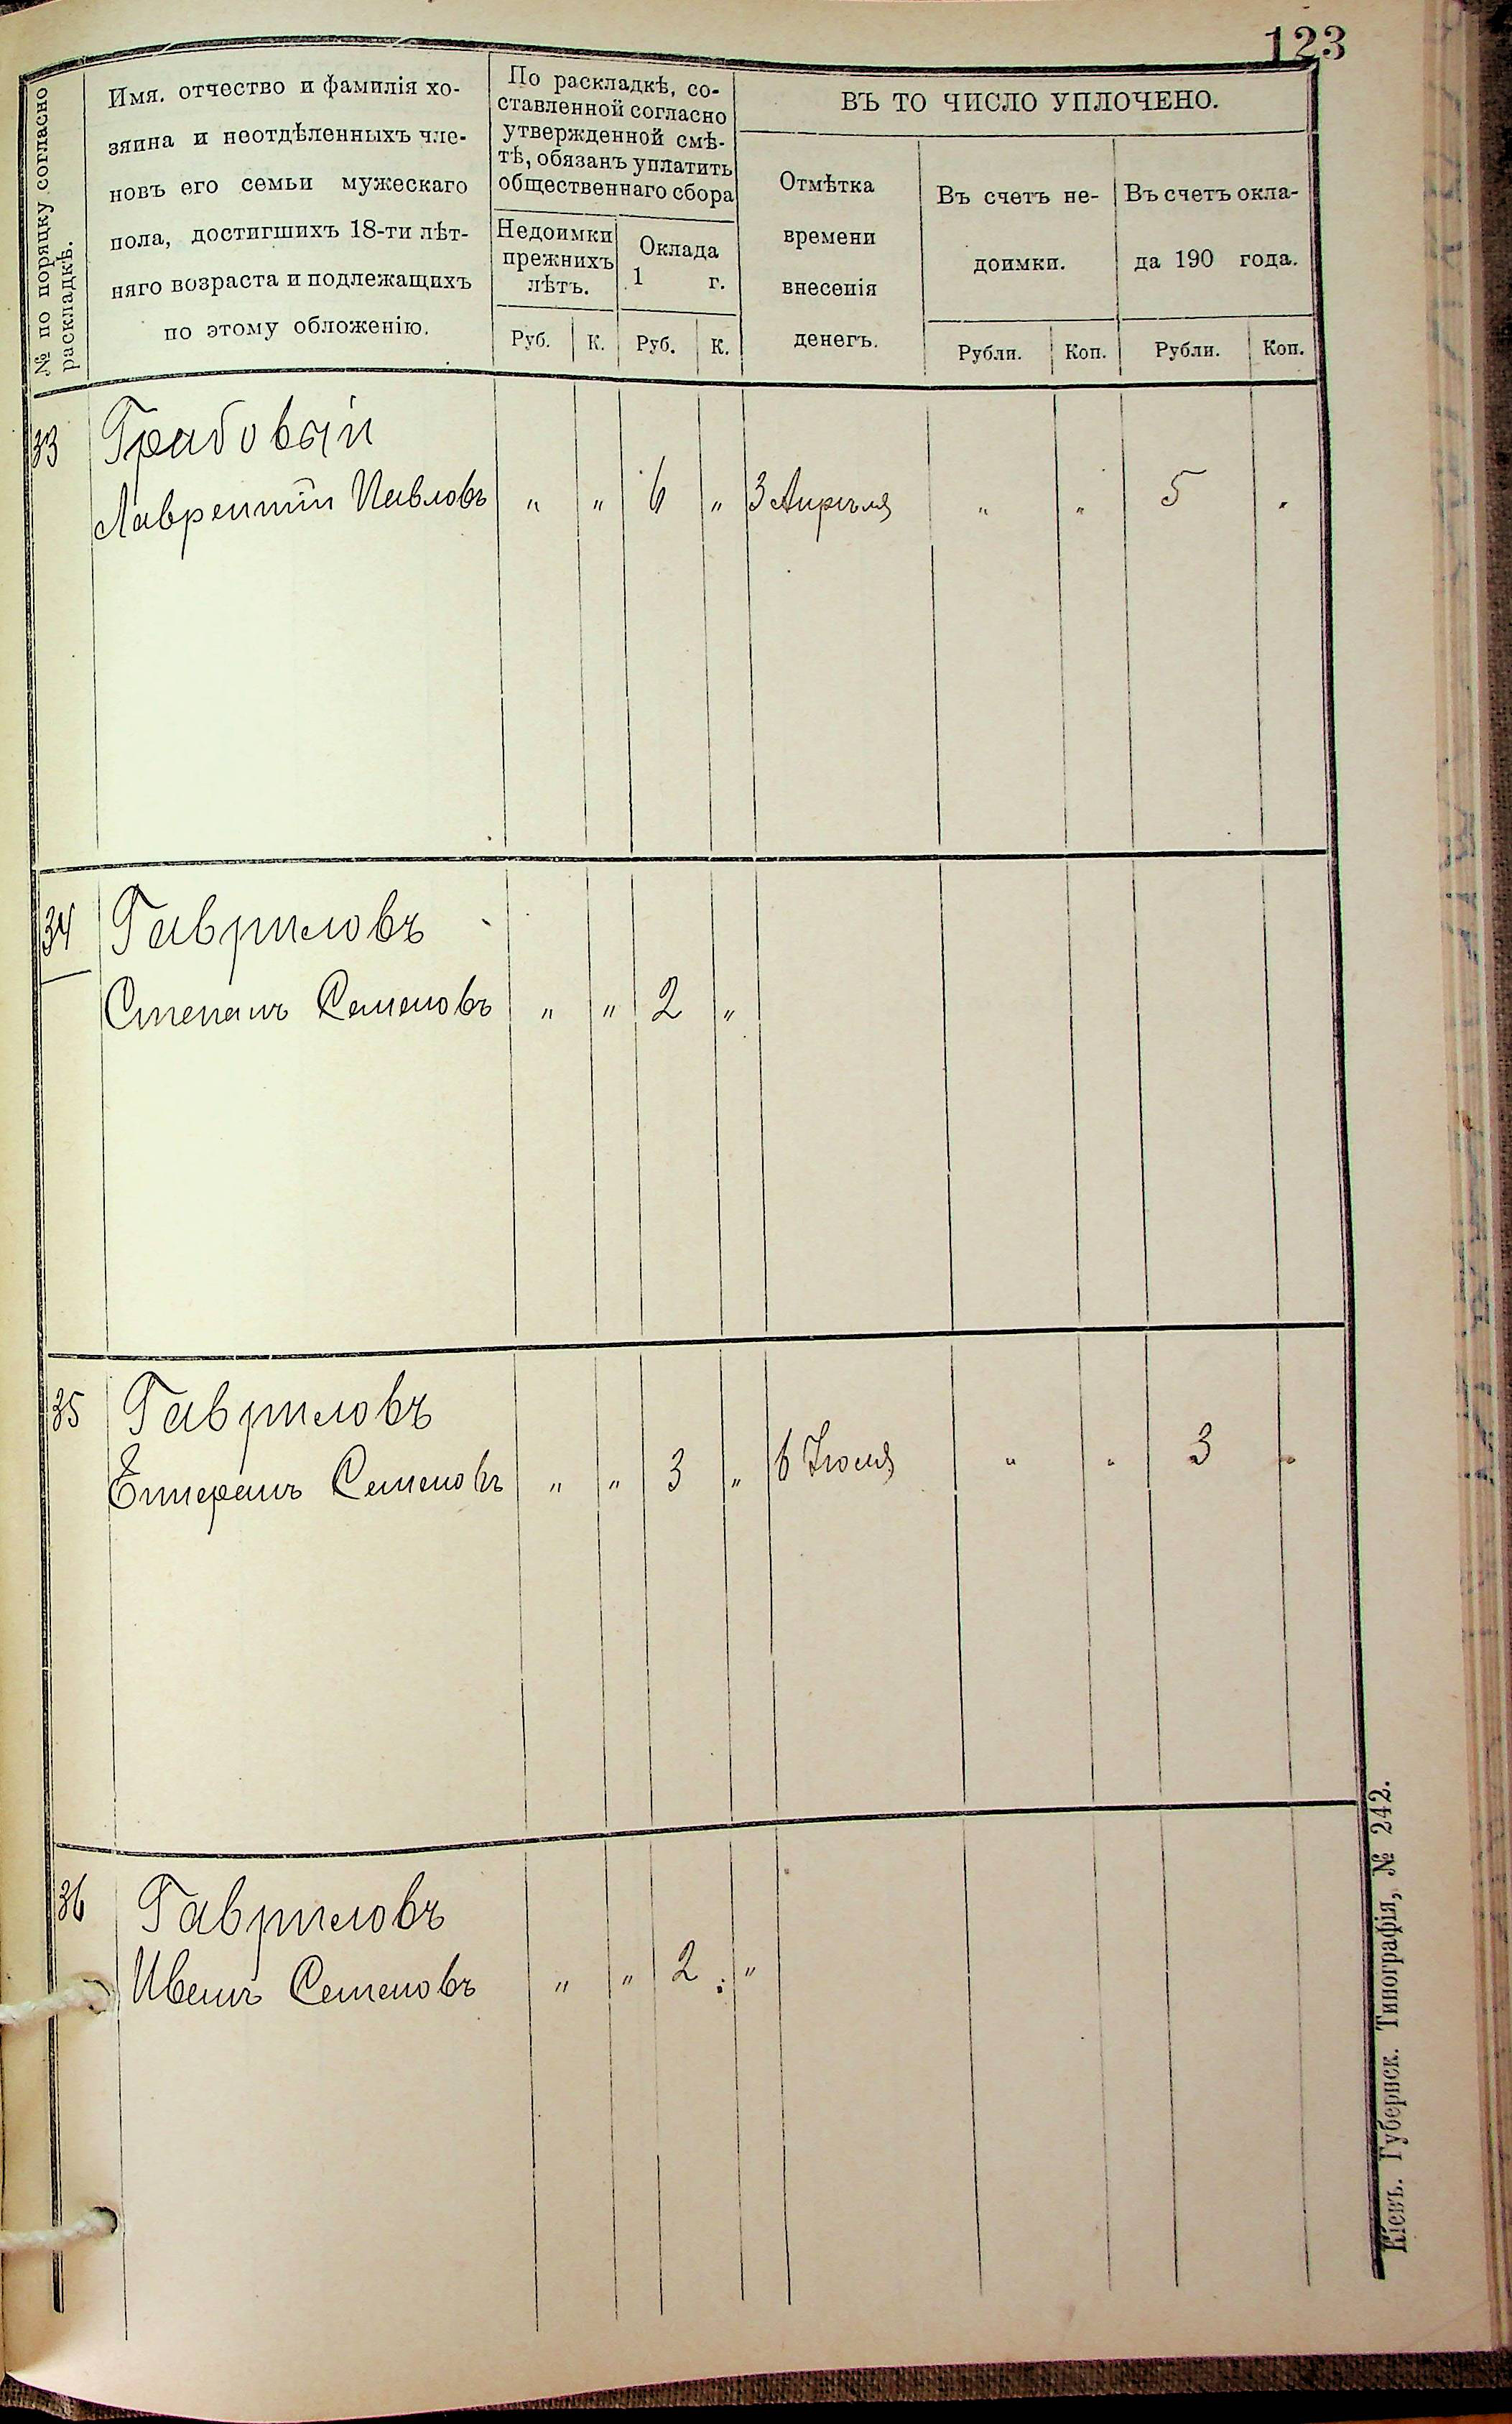 123
№ по порядку согласно
раскладкѣ.
Имя, отчество и фамилія хо-
зяина и неотдѣленныхъ чле-
новъ его семьи мужескаго
пола, достигшихъ 18-ти лѣт-
няго возраста и подлежащихъ
по этому обложенію.
По раскладкѣ, со-
ставленной согласно
утвержденной смѣ-
тѣ, обязанъ уплатить
общественнаго сбора
Недоимки
прежнихъ
лѣтъ.
Оклада
1 г.
Руб. К. Руб. К.
ВЪ ТО ЧИСЛО УПЛОЧЕНО.
Отмѣтка
времени
внесенія
денегъ.
Въ счетъ не-
доимки.
Въ счетъ окла-
да 190 года.
Рубли. Коп. Рубли. Коп.
33 Грабовый
Лаврентій Павловъ „ „ 6 „ 3 Апрѣля „ „ 5 „
34 Гавриловъ
Степанъ Семеновъ „ „ 2 „
35 Гавриловъ
Семеновъ „ „ 3 „ 6 Іюля „ „ 3 „
36 Гавриловъ
Иванъ Семеновъ „ „ 2 „
Кіевъ. Губернск. Типографія, № 242.